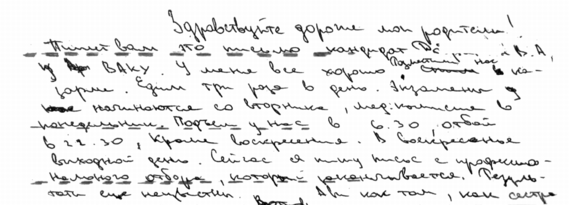 Здравствуйте дорогие мои родители!
Пишет вам это письмо кандидат В.А.
ВАКУ. У меня все хорошо Разместили нас в ка-
зарме. Едим три раза в день. Экзамены
начинаются со вторника, мед.комиссия в
понедельник. Подъем у нас в 6.30 отбой
в 22.30, кроме воскресения. В воскресенье
выходной день. Сейчас я пишу письмо с професcио-
нального отбора, который заканчивается. Резуль-
таты еще неизвестны. Как там, как сестра